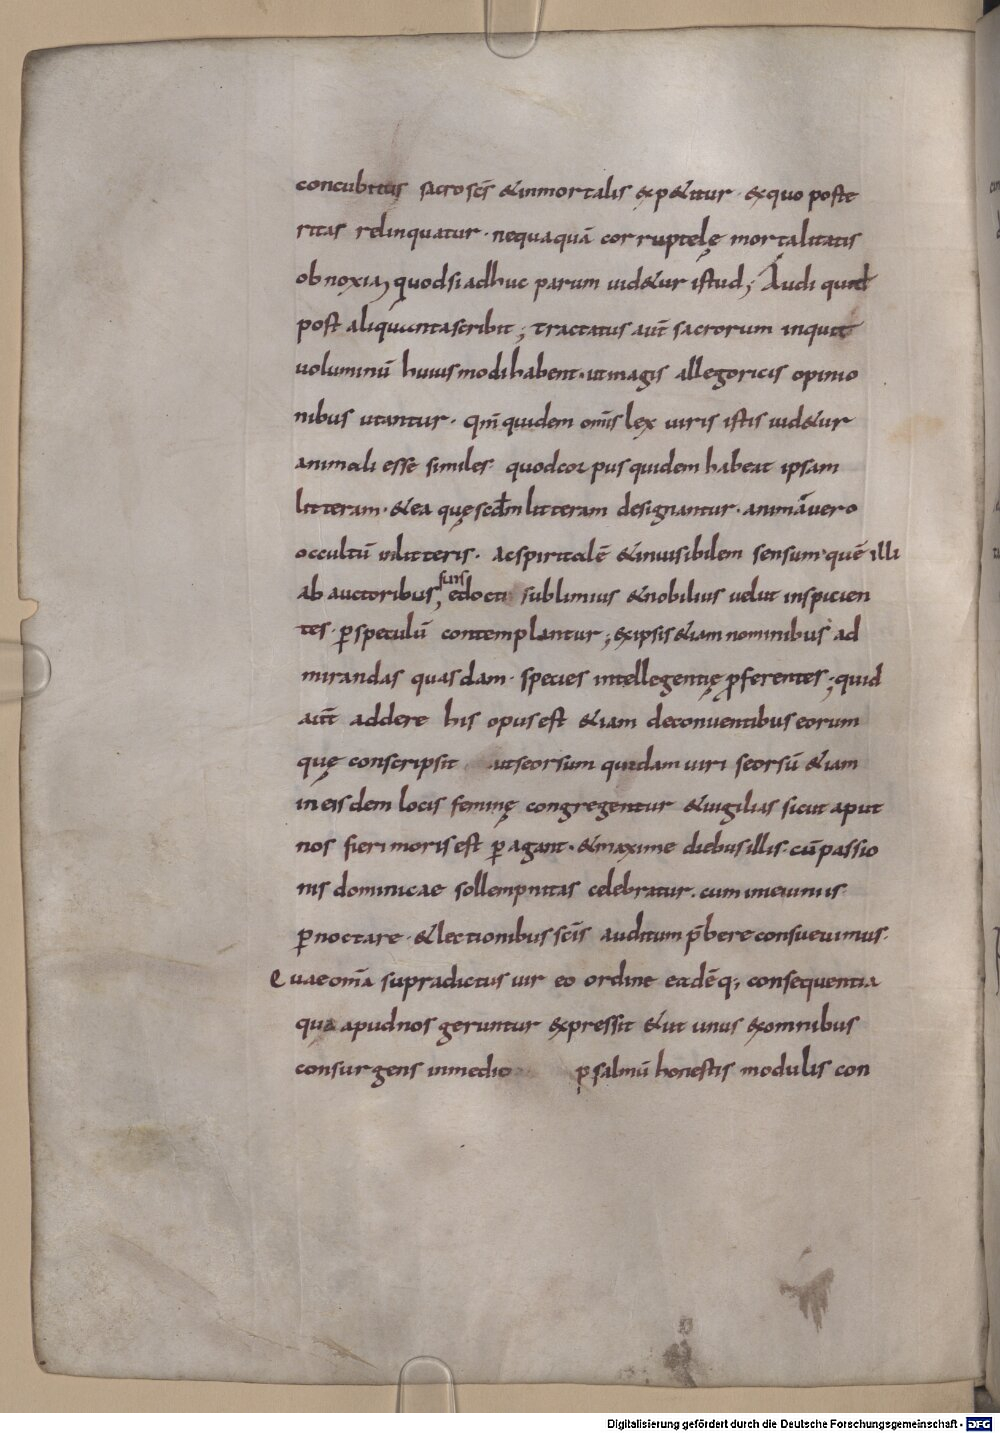 concubitus sacroscs̄ &inmortalis exp&itur · exquo poste
ritas relinquatur · nequaquā corruptelę mortalitatis
obnoxia, quodsiadhuc parum uid&ur istud; Audi quid
post aliquantascribit; tractatus aut̄ sacrorum inquit
uoluminū huiusmodihabent · utmagis allegoricis opinio
nibus utantur · qm̄quidem omīs lex uiris istis uid&ur
animali esse similes · quodcorpus quidem habeat ipsam
litteram · &ea quęscdm̄ litteram designantur · animāuero
occultū inlitteris · acspiritalē &inuisibilem sensum · quē illi
ab auctoribus, suis edocti sublimius &nobilius uelut inspicien
tes · p̄speculū contemplantur; exipsis&iam nominibus ad
mirandas quasdam · species intellegentię p̄ferentes; quid
aut̄ addere his opusest &iam deconuentibus eorum
quę conscripsit utseorsum quidam uiri seorsū &iam
in eisdem locis feminę congregentur &uigilias sicut aput
nos fieri moris est p̄agant · &maxime diebusillis · cūpassio
nis dominicae sollempnitas celebratur · cum inieiuniis
p̄noctare · &lectionibus scīs auditum p̄bere consueuimus ·
Quae omīa supradictus uir eo ordine eadēq; consequentia
qua apudnos geruntur expressit &ut unus exomnibus
consurgens inmedio psalmū honestis modulis con
Digitalisierung gefördert durch die Deutsche Forschungsgemeinschaft - DFG